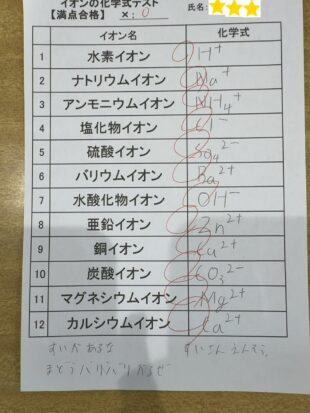 イオンの化学式テスト
【満点合格】 ×: 0
氏名:
イオン名 化学式
1 水素イオン H⁺
2 ナトリウムイオン Na⁺
3 アンモニウムイオン NH₄⁺
4 塩化物イオン Cl⁻
5 硫酸イオン SO₄²⁻
6 バリウムイオン Ba²⁺
7 水酸化物イオン OH⁻
8 亜鉛イオン Zn²⁺
9 銅イオン Cu²⁺
10 炭酸イオン CO₃²⁻
11 マグネシウムイオン Mg²⁺
12 カルシウムイオン Ca²⁺
すいかあるな すいさんえんそう
まどうバリバリかるぜ